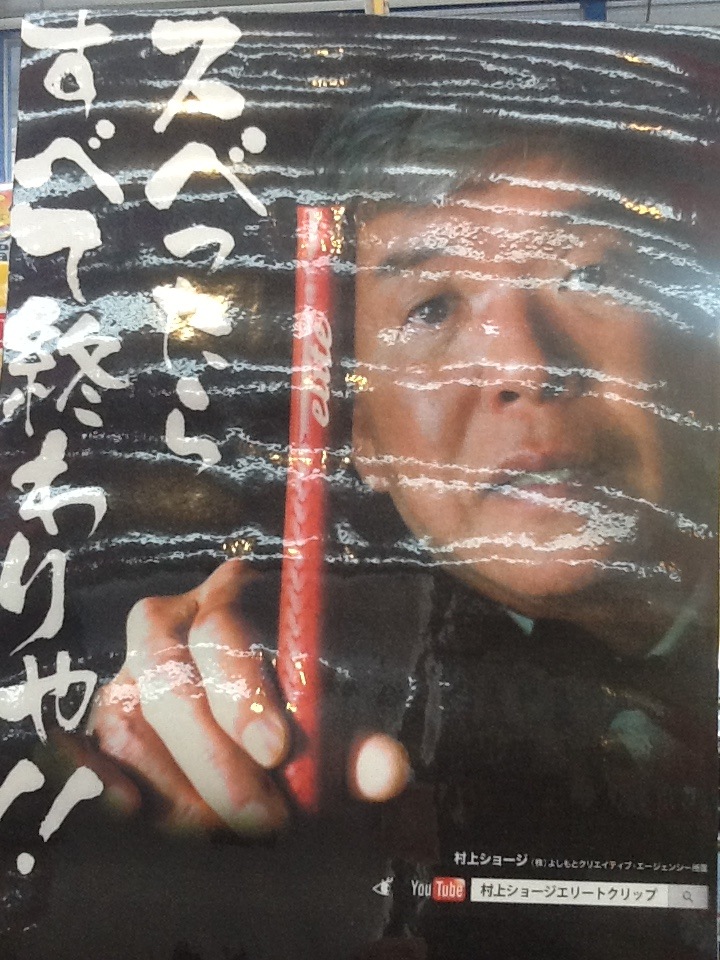 スベったら
すべて終わりや!!
elite
村上ショージ (株)よしもとクリエイティブ・エージェンシー所属
YouTube 村上ショージエリートクリップ